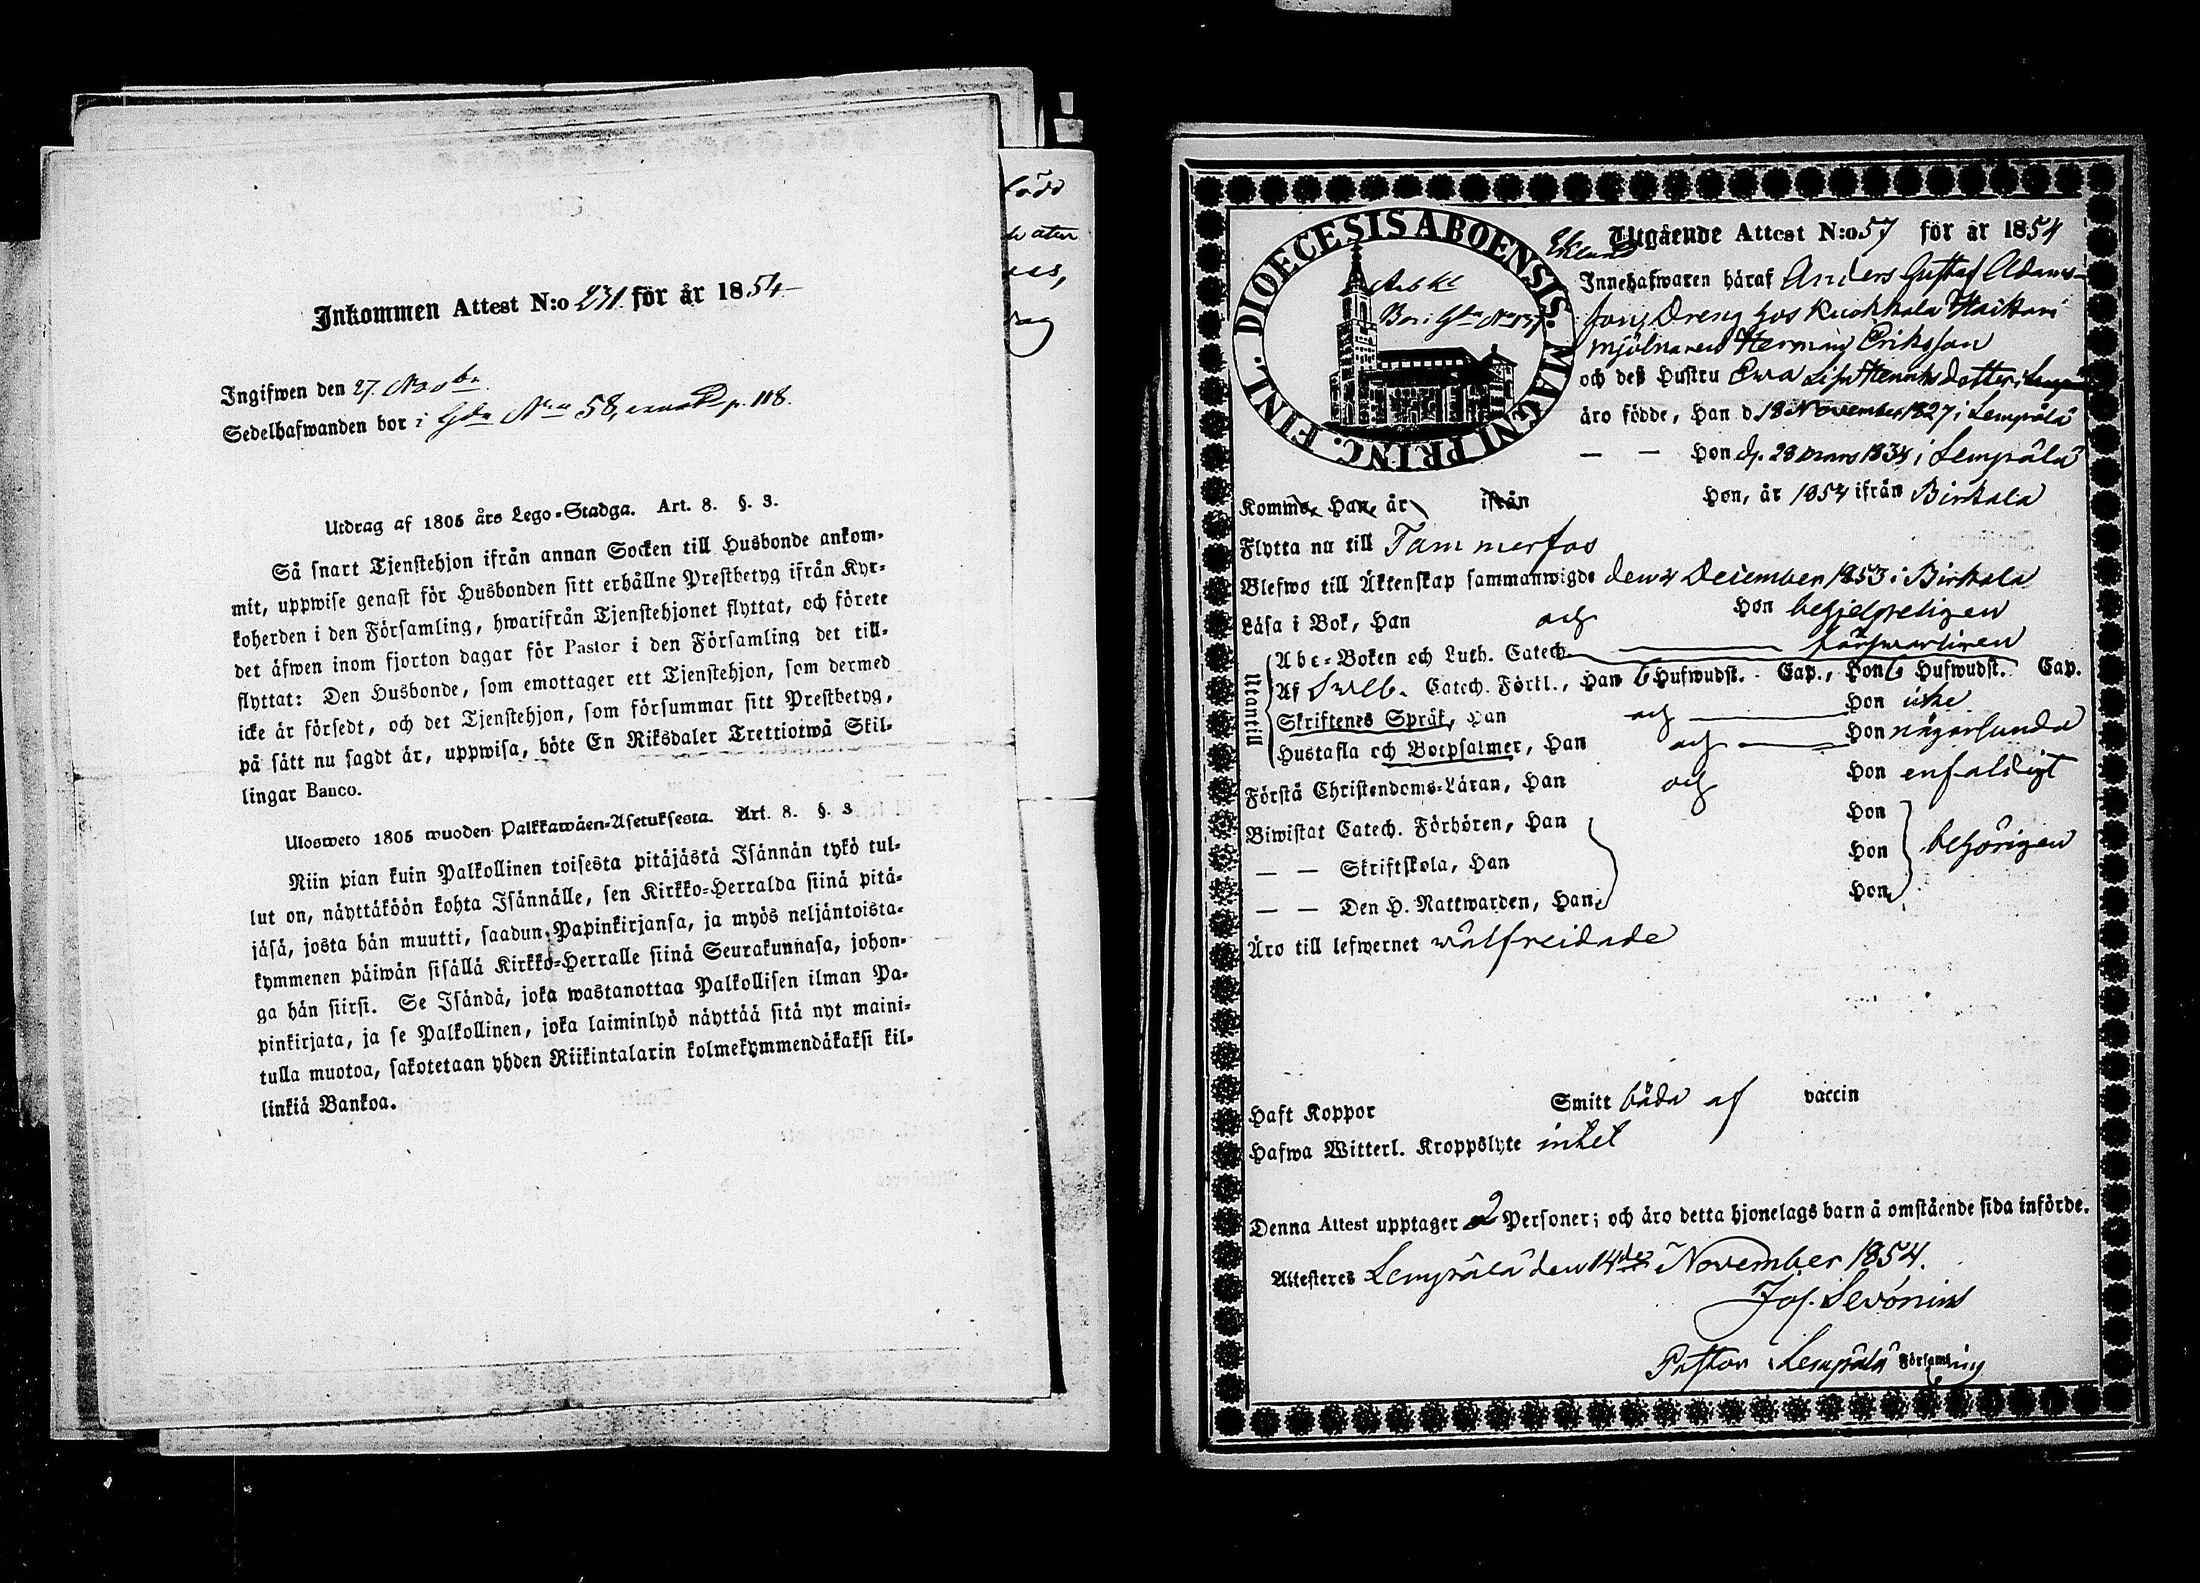 Inkommen Attest N:o 231. för år 1854
Ingifwen den 27. Novbr
Sedelhafwanden bor i Gdn No 58, p. 118.
Utdrag af 1805 års Lego-Stadga. Art. 8. §. 3.
Så snart Tjenstehjon ifrån annan Socken till Husbonde ankom-
mit, uppwise genast för Husbonden sitt erhållne Prestbetyg ifrån Kyr-
koherden i den Församling, hwarifrån Tjenstehjonet flyttat, och förete
det äfwen inom fjorton dagar för Pastor i den Församling det till-
flyttat: Den Husbonde, som emottager ett Tjenstehjon, som dermed
icke är försedt, och det Tjenstehjon, som försummar sitt Prestbetyg,
på sätt nu sagdt är, uppwisa, böte En Riksdaler Trettiotwå Skil-
lingar Banco.
Ulosweto 1805 wuoden Palkkawäen-Asetuksesta. Art. 8. §. 3
Niin pian kuin Palkollinen toisesta pitäjästä Isännän tykö tul-
lut on, näyttäköön kohta Isännälle, sen Kirkko-Herralda siinä pitä-
jäsä, josta hän muutti, saadun Papinkirjansa, ja myös neljäntoista-
kymmenen päiwän sisällä Kirkko-Herralle siinä Seurakunnasa, johon-
ga hän siirsi. Se Isändä, joka wastanottaa Palkollisen ilman Pa-
pinkirjata, ja se Palkollinen, joka laiminlyö näyttää sitä nyt maini-
tulla muotoa, sakotetaan yhden Riikintalarin kolmekymmendäkaksi kil-
linkiä Bankoa.
född
DIOECESIS ABOENSIS. MAGNI PRINC. FINL.
Utgående Attest N:o 57 för år 1854
Innehafwaren häraf Anders Gustaf Adams-
son, Dreng hos Kuokkala Haikari
mjölnaren Herman Eriksson
och deß Hustru Ewa Lisa Henriksdotter i
äro födde, Han d 18 November 1827 i Lempälä
— — Hon d. 28 Mars 1834 i Lempälä
Komme, Han, år ifrån Hon, år 1854 ifrån Birkala
Flytta nu till Tammerfos
Blefwo till Äktenskap sammanwigde den 4 December 1853 i Birkala
Läsa i Bok, Han och Hon
Utantill
Abc-Boken och Luth. Catech.
Af Sweb. Catech. Förkl., Han 6 Hufwudst. Cap., Hon 6 Hufwudst. Cap.
Skriftenes Språk, Han och Hon icke
Hustafla och Botpsalmer, Han och Hon någorlunda
Förstå Christendoms-Läran, Han och Hon enfaldigt
Biwistat Catech. Förhören, Han Hon
— — Skriftskola, Han Hon behörigen
— — Den H. Nattwarden, Han Hon
Äro till lefwernet wälfreidade
Haft Koppor Smitt båda af vaccin
Hafwa Witterl. Kroppslyte intet
Denna Attest upptager 2 Personer; och äro detta hjonelags barn å omstående sida införde.
Attesteres Lempälä den 14de November 1854.
Jos. Sevónius
Pastor i Lempälä Församling